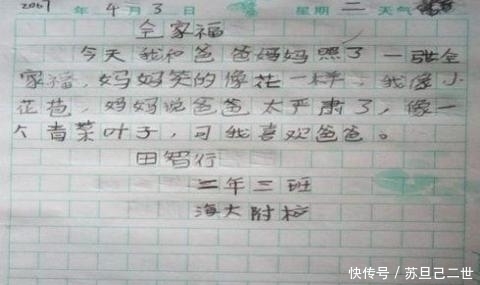 2007年4月3日 星期二 天气
全家福
今天我和爸爸妈妈照了一张全
家福，妈妈笑的像花一样，我像小
花苞，妈妈说爸爸太严肃了，像一
个青菜叶子，可我喜欢爸爸。
田智行
二年三班
海大附校
快传号/苏旦己二世